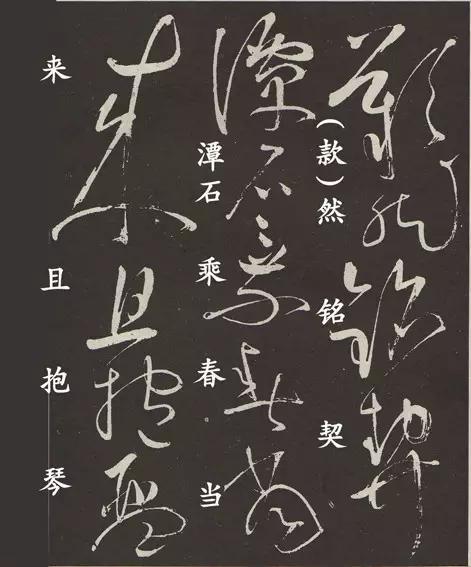 (款)然铭契
潭石乘春当
来且抱琴